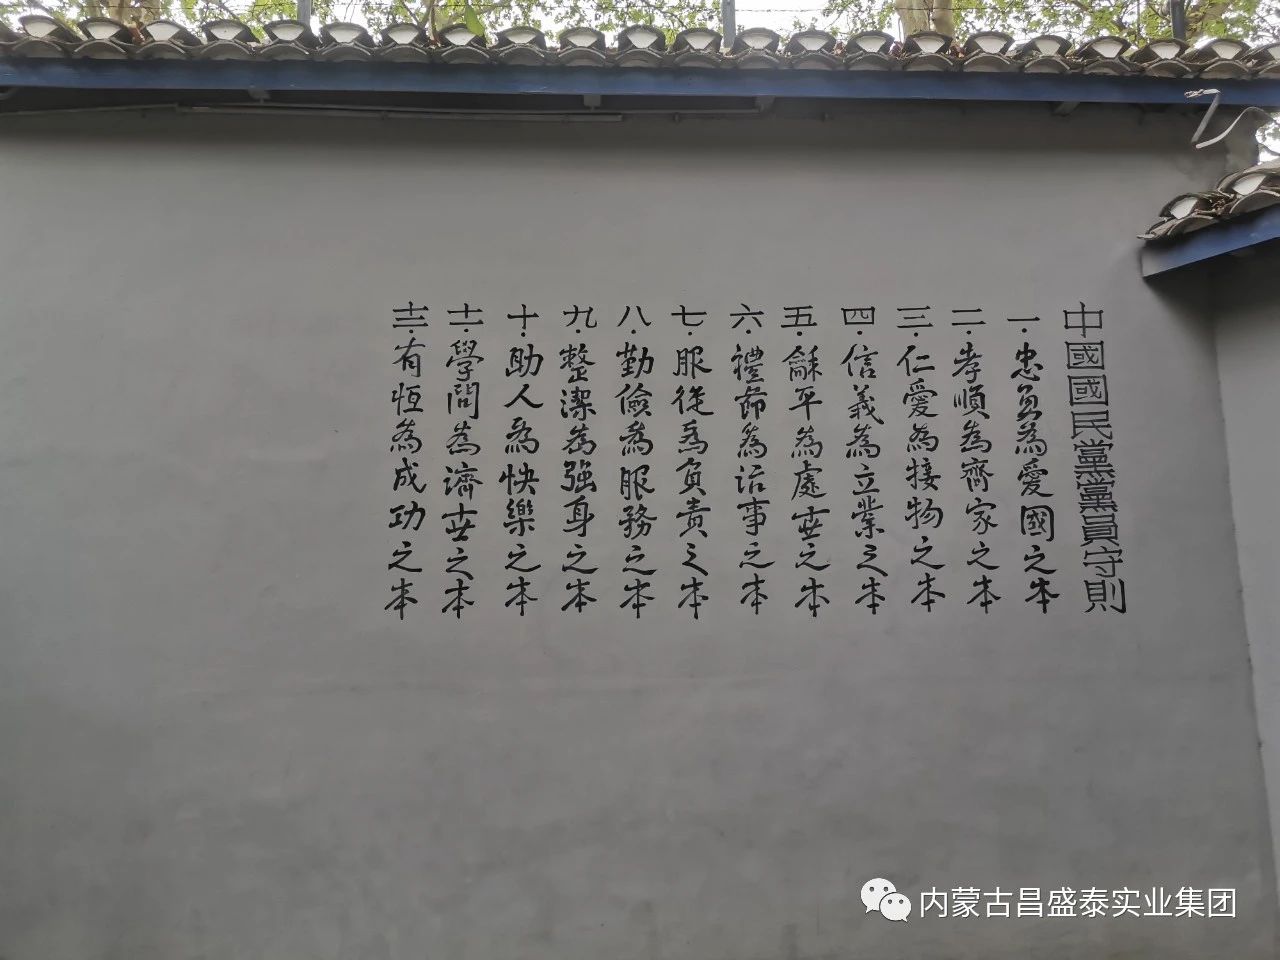 中國國民黨黨員守則
一.忠勇為愛國之本
二.孝順為齊家之本
三.仁愛為接物之本
四.信義為立業之本
五.龢平為處世之本
六.禮節為治事之本
七.服從為負責之本
八.勤儉為服務之本
九.整潔為強身之本
十.助人為快樂之本
十一.學問為濟世之本
十二.有恆為成功之本
内蒙古昌盛泰实业集团